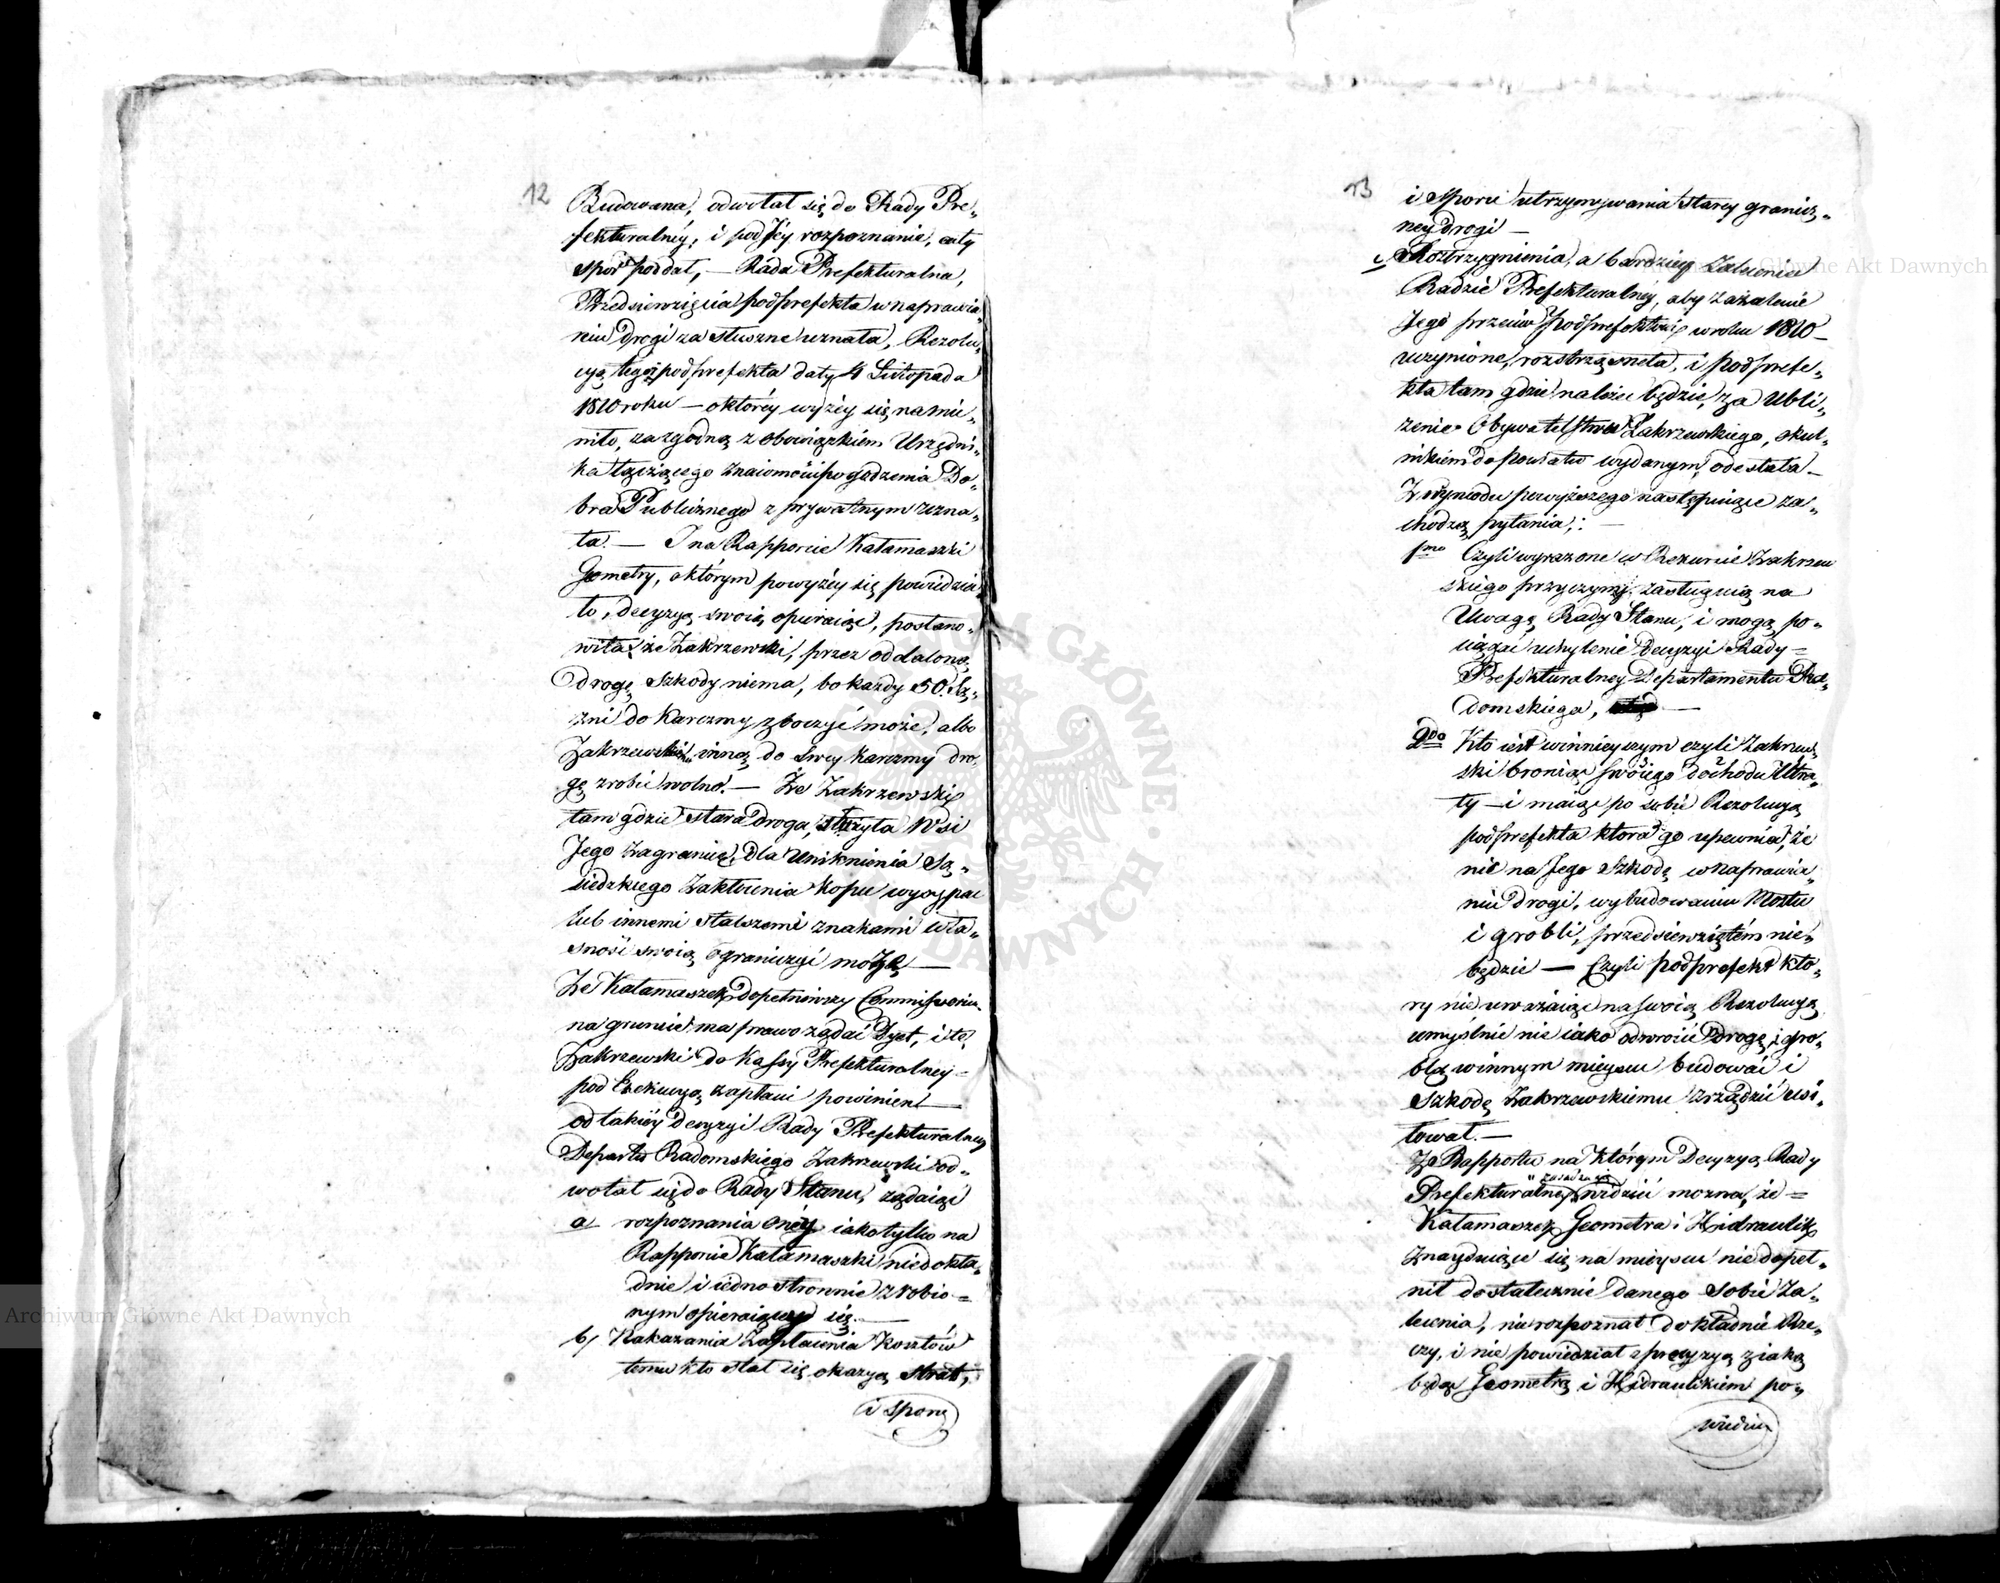 12
Budowana, odwołał się do Rady Pre-
fekturalnéy, i pod Jéy rozpoznanie, cały
spór poddał, — Rada Prefekturalna,
Przedsięwzięcia podprefekta w naprawia-
niu Drogi za słuszne uznała, Rezolu-
cyą tegoż podprefekta daty 4 Listopada
1810 roku — o któréy wyżéy się namie-
niło, za zgodną z obowiązkiem Urzędni-
ka łączącego znaiomość pogodzenia Do-
bra Publicznego z prywatnym uzna-
ła. — I na Rapporcie Kałamaszki
Geometry, o którym powyżéy się powiedzia-
ło, decyzyą swoią opieraiąc, postano-
wiła, że Zakrzewski, przez oddaloną
Drogę Szkody niema, bo każdy 50 Są-
żni do Karczmy zboczyć może, albo
Zakrzewskiemu inną do swey Karczmy dro-
gę zrobić wolno. — Że Zakrzewski
tam gdzie stara Droga, służyła Wsi
Jego za granicę, Dla Uniknienia Są-
siedzkiego Zakłócenia Kopce wysypać
lub innemi stalszemi znakami wła-
sność swoią ograniczyć może —
Że Kałamaszek dopełniwszy Commissorium
na gruncie ma prawo żądać Dyet, i te
Zakrzewski do Kassy Prefekturalney =
pod Exekucyą zapłacić powinien —
od takiéy decyzyi Rady Prefekturalney
Departu Radomskiego Zakrzewski od-
wołał się do Rady Stanu, żądaiąc
a/ rozpoznania onéy iako tylko na
Rapporcie Kałamaszki niedokła-
dnie i iednostronnie zrobio =
nym opieraiącey się. —
b/ Nakazania Zapłacenia Kosztów
temu kto stał się okazyą strat,
i sporu
13
i sporu utrzymywania starey granicz-
ney drogi —
c/ Rozstrzygnienia, a bardziey Zalecenia
Radzie Prefekturalnéy, aby zażalenie
Jego przeciw podprefektowi w roku 1810 —
uczynione, rozstrząsnęła, i podprefe-
kta tam gdzie należeć będzie, za Ubli-
żenie Obywatelstwu Zakrzewskiego, skut-
nikiem do powiatu wydanym, odesłała —
Z wywodu powyższego następuiące za-
chodzą pytania; : —
1mo Czyli wyrażone w Rekursie Zakrzew
skiego przyczyny, zasługuią na
Uwagę Rady Stanu, i mogą po-
ciągać uchylenie Decyzyi Rady =
Prefekturalney Departamentu Ra-
domskiego, —
2do Kto iest winnieyszym czyli Zakrzew-
ski broniąc swoiego dochodu Utra-
ty — i maiąc po sobie Rezolucyą
podprefekta która go upewnia, że
nic na Jego Szkodę w naprawia-
niu Drogi, wybudowaniu Mostu
i grobli, przedsiewziętém nie-
będzie — Czyli podprefekt któ-
ry nie uważaiąc na swoią Rezolucyą
umyślnie nie iako odwrócić Drogę, i gro-
blą w innym mieyscu budować i
Szkodę Zakrzewskiemu zrządzić usi-
łował. —
Ze Rapportu na którym Decyzya Rady
Prefekturalney widzieć można, że =
Kałamaszek Geometra i Hidraulik
Znayduiąc się na mieyscu nie dopeł-
nił dostatecznie danego Sobie Za-
lecenia, nie rozpoznał dokładnie Rze-
czy, i nie powiedział z precyzyą z iaką
będąc Geometrą i Hidraulikiem po-
wiedzieć
Archiwum Główne Akt Dawnych